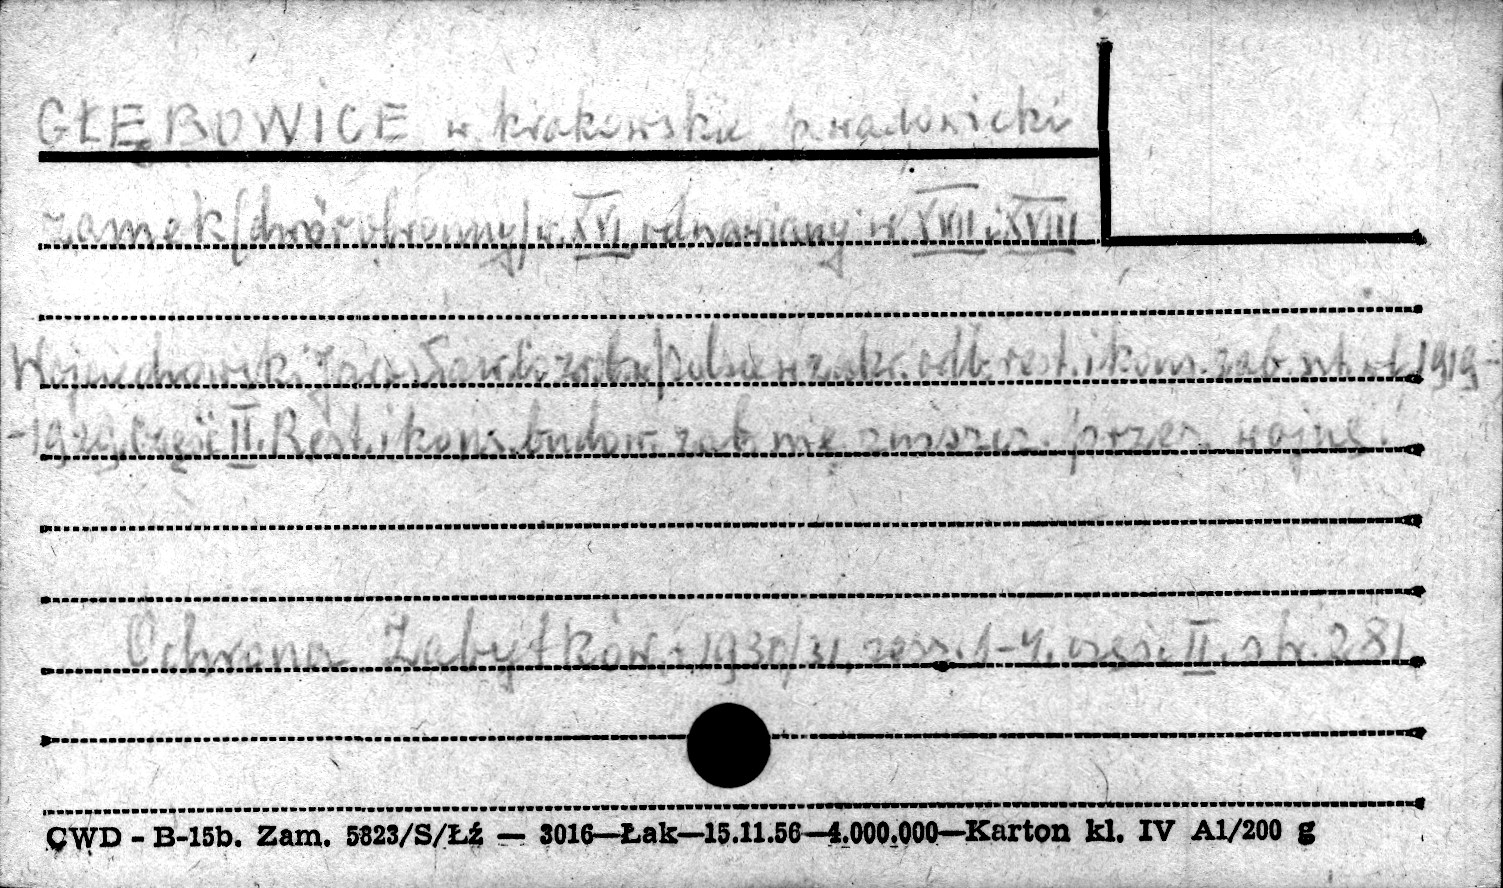 GŁĘBOWICE w krakowskie p. wadowicki
zamek (dwór obronny) w. XVI, odnawiany w. XVII i XVIII
Wojciechowski Jarosław: w zakr. odb. rest. i kons. zab. 1919-
-1929. Część II. Rest. i kons. budow. zab. nie zniszcz. przez wojnę.
Ochrona Zabytków, - 1930/31, zesz. 1-4. część. II. str. 281
CWD - B-15b. Zam. 5823/S/Łź — 3016—Łak—15.11.56—4.000.000—Karton kl. IV A1/200 g